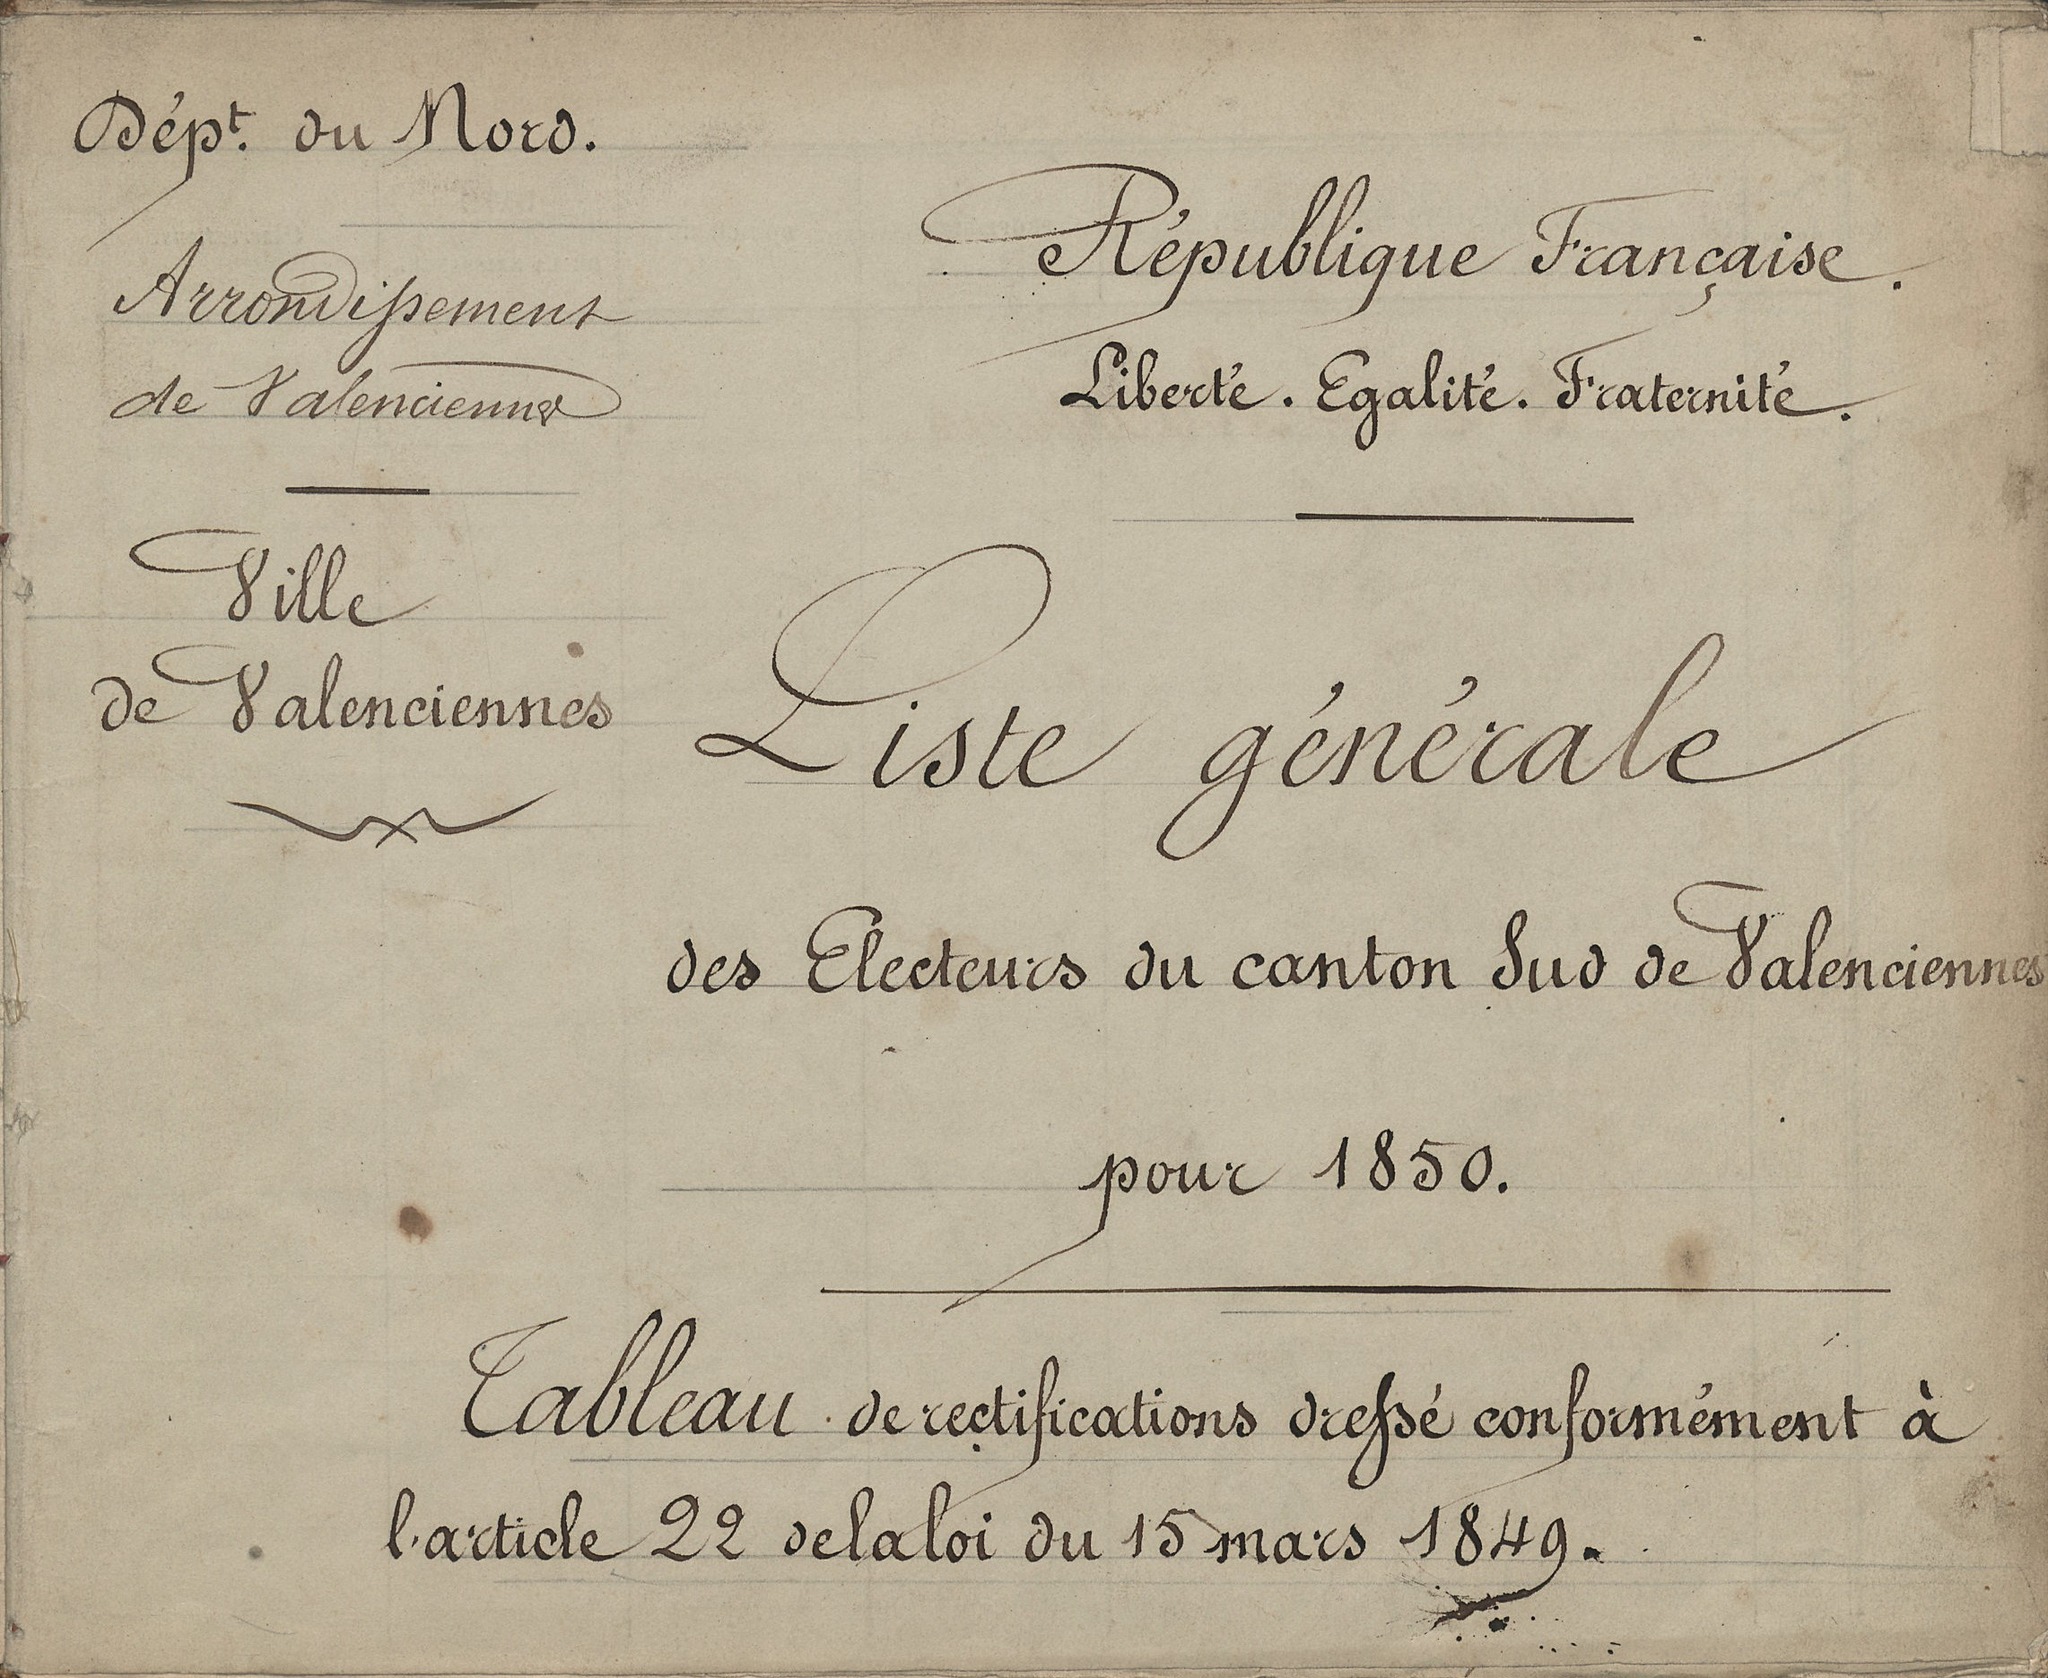 Dépt. du Nord.
Arrondissement
de Valenciennes
Ville
de Valenciennes
République Française.
Liberté. Egalité. Fraternité.
Liste générale
des Electeurs du canton Sud de Valenciennes
pour 1850.
Tableau de rectifications dressé conformément à
l'article 22 de la loi du 15 mars 1849.